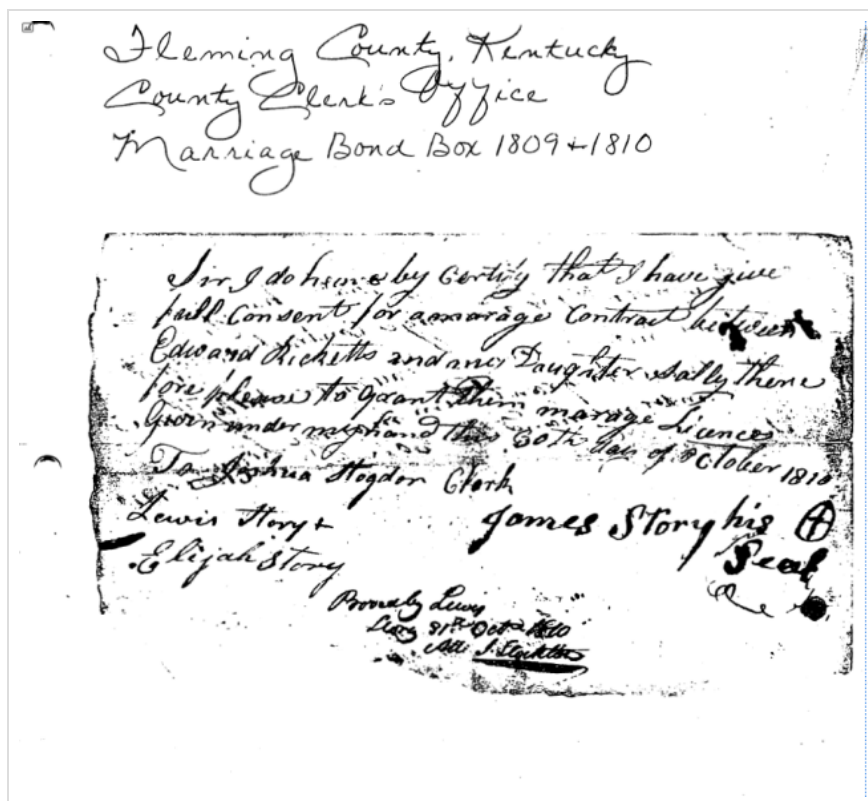 Fleming County, Kentucky
County Clerk's Office
Marriage Bond Box 1809 + 1810
Sir I do here by Certify that I have give
full Consent for a marage Contract between
Edward Ricketts and my Daughter Sally there
fore please to grant them marage Licences
Given under my hand this 30th day of October 1810
To Joshua Stogdon Clerk
Lewis Story +
Elijah Story
James Story his
Seal
Proved by Lewis
Story 31st Oct 1810
Att J. Stockton